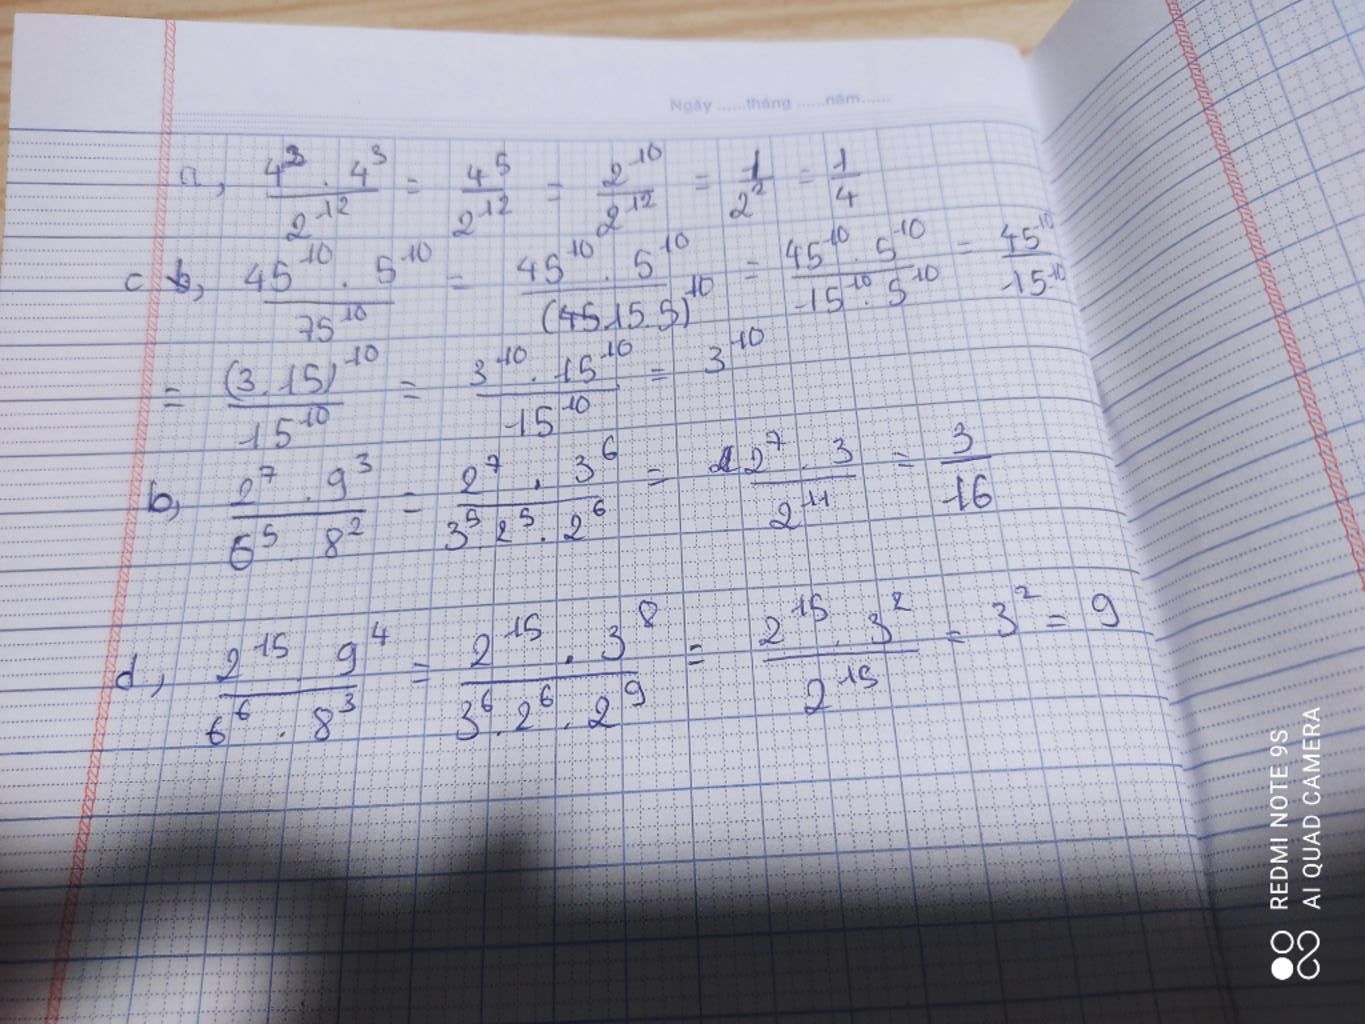 Ngày ......tháng ......năm......
a, 4² . 4³ / 2¹² = 4⁵ / 2¹² = 2¹⁰ / 2¹² = 1 / 2² = 1 / 4
c, 45¹⁰ . 5¹⁰ / 75¹⁰ = 45¹⁰ . 5¹⁰ / (15.5)¹⁰ = 45¹⁰ . 5¹⁰ / 15¹⁰ . 5¹⁰ = 45¹⁰ / 15¹⁰
= (3.15)¹⁰ / 15¹⁰ = 3¹⁰ . 15¹⁰ / 15¹⁰ = 3¹⁰
b, 2⁷ . 9³ / 6⁵ . 8² = 2⁷ . 3⁶ / 3⁵ . 2⁵ . 2⁶ = 2⁷ . 3 / 2¹¹ = 3 / 16
d, 2¹⁵ . 9⁴ / 6⁶ . 8³ = 2¹⁵ . 3⁸ / 3⁶ . 2⁶ . 2⁹ = 2¹⁵ . 3² / 2¹⁵ = 3² = 9
REDMI NOTE 9S
AI QUAD CAMERA